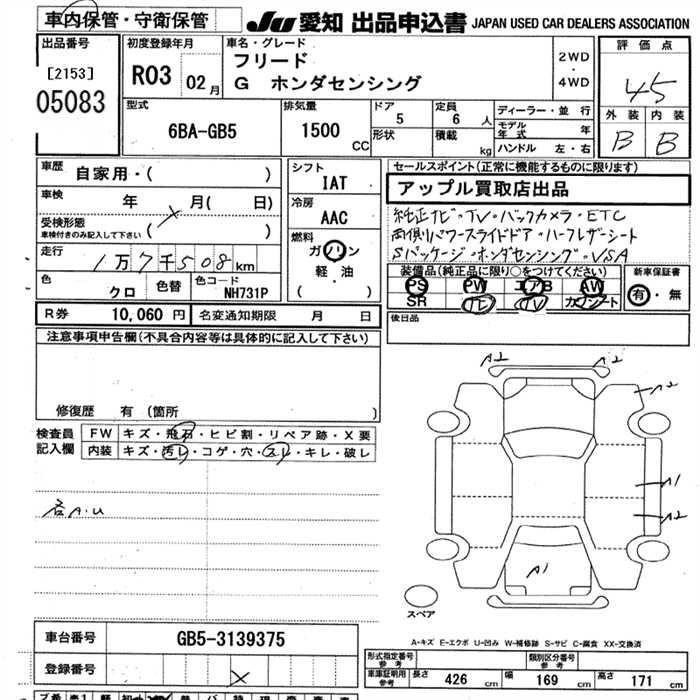 車内保管・守衛保管
JU 愛知 出品申込書 JAPAN USED CAR DEALERS ASSOCIATION
出品番号
[2153]
05083
初度登録年月
R03 02月
車名・グレード
フリード
G ホンダセンシング
2WD
・
4WD
評価点
4.5
外装 内装
B B
型式
6BA-GB5
排気量
1500
CC
ドア
5
形状
定員
6 人
積載
kg
ディーラー・並行
モデル年式 年
ハンドル 左・右
車歴
自家用・( )
車検
年 月(日)
受検形態
車検付きのみ記入して下さい ( )
走行
1万7千508km
色
クロ
色替
色コード
NH731P
シフト
IAT
冷房
AAC
燃料
ガソリン
軽・油
( )
セールスポイント(正常に機能するものに限ります)
アップル買取店出品
純正ナビ・TV・バックカメラ・ETC
両側パワースライドドア・ハーフレザーシート
Sパッケージ・ホンダセンシング・VSA
装備品(純正品に限り○をつけてください)
PS PW エアB AW
SR ナビ TV カワシート
新車保証書
有・無
後日品
R券 10,060 円 名変通知期限 月 日
注意事項申告欄(不具合内容等は具体的に記入して下さい)
修復歴 有 (箇所 )
検査員記入欄
FW キズ・飛石・ヒビ割・リペア跡・X要
内装 キズ・汚レ・コゲ・穴・スレ・キレ・破レ
各A.U
A2 A2
A2
A1
A2
A1
スペア
A-キズ E-エクボ U-凹み W-補修跡 S-サビ C-腐食 XX-交換済
車台番号 GB5-3139375
登録番号
形式指定番号
参考
類別区分番号
参考
車庫証明用
参考
長さ 426 cm 幅 169 cm 高さ 171 cm